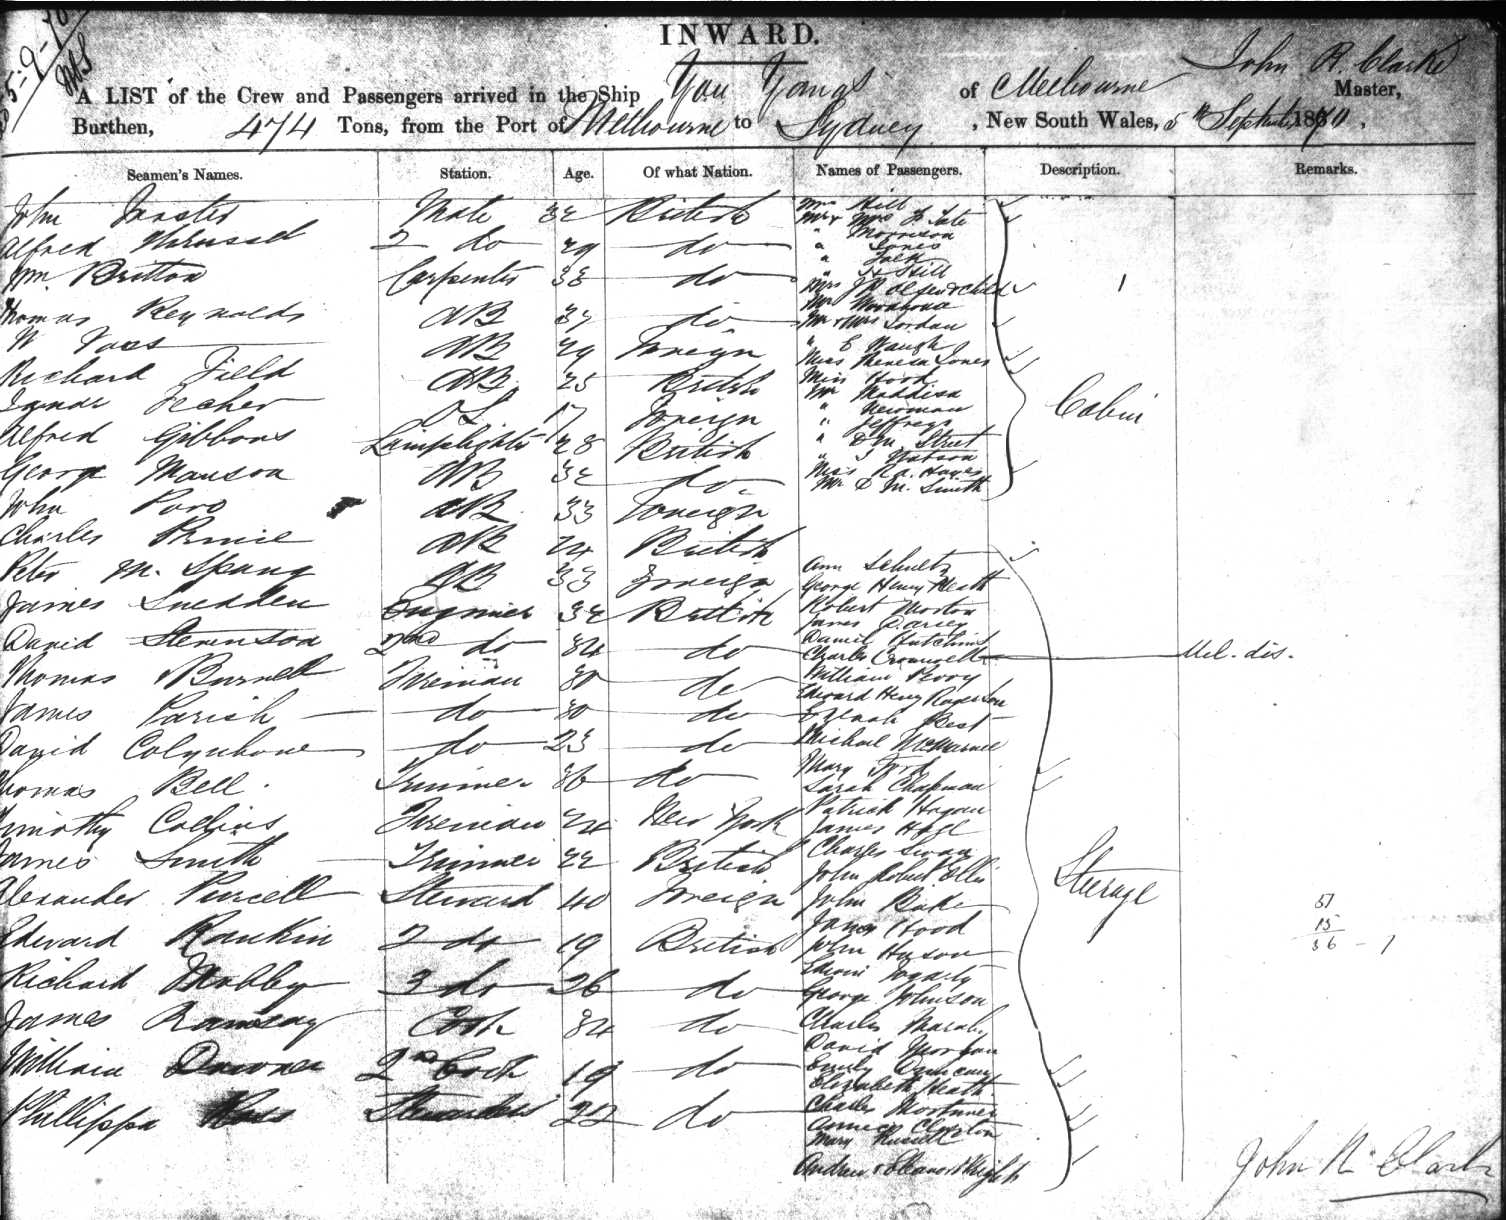 INWARD.
John R. Clarke
A LIST of the Crew and Passengers arrived in the Ship You Yangs of Melbourne Master,
Burthen, 474 Tons, from the Port of Melbourne to Sydney, New South Wales, 5th September 1870,
Seamen's Names. Station. Age. Of what Nation. Names of Passengers. Description. Remarks.
John Mate 32 British
Alfred 2 do 29 do
Wm Britton Carpenter 38 do
Thomas Reynolds AB do
W Voss AB 29 Foreign
Richard Field AB 25 British
17 Foreign
Alfred Gibbons Lamplighter 28 British
George Manson AB 32 do
John AB 33 Foreign
Charles AB 24 British
Peter M. Spang AB 33 Foreign
James Snedden Engineer 32 British
David Stevenson 2nd do 34 do
Thomas Burnell Fireman 30 do
James Parish do 30 do
David Colquhoune do 23 do
Thomas Bell Trimmer 36 do
Timothy Collins Fireman 24 New York
James Smith Trimmer 22 British
Alexander Purcell Steward 40 Foreign
Edward Rankin 2 do 19 British
Richard Mobby 3 do 26 do
James Ramsay Cook 34 do
William 2nd Cook 19 do
Phillippa Ross Stewardess 22 do
Mrs Hill
Mr & Mrs Tate
" Morrison
" Jones
" Falk
" Hill
Mrs & child
Mr
Mr & Mrs Jordan
" E Waugh
Miss Theresa Jones
Miss Hood
Mr Maddison
" Newman
" Jeffreys
" Street
" Watson
Miss Hayes
Mr D M. Smith
Cabin
1
Ann Schultz
George Henry Heath
Robert Morton
James Darcy
Daniel Hutchins
Charles Cromwell Mel. dis.
William Perry
Edward Henry Rogerson
Best
Michael
Mary Ford
Sarah Chapman
Patrick Hogan
James Hoyd
Charles Swan
John Robert Ellis
John Bake
James Hood
John Huson
Fogarty
George Johnson
Charles
David Morgan
Emily Duncan
Elizabeth Heath
Charles Mortimer
Clayton
Mary Russell
Andrew & Eleanor Wright
Steerage
51
15
36 - 1
John R Clarke